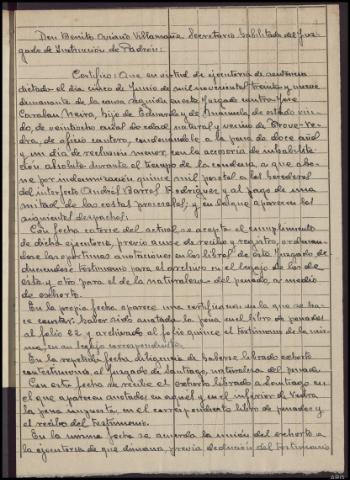 Don Benito Asiaro Villamañe Secretario habilitado del Juz-
gado de Instrucción de Padrón:
Certifico: Que en virtud de ejecutoria de sentencia
dictada el día cinco de Junio de mil novecientos treinta y nueve
dimanante de la causa seguida en este Juzgado contra José
Caraban Neira, hijo de Eduardo y de Manuela, de estado viu-
do, de veintiocho años de edad natural y vecino de
de oficio cantero, condenándole a la pena de doce años
y un día de reclusión menor, con la accesoria de inhabilita-
ción absoluta durante el tiempo de la condena, a que abo-
ne por indemnización quince mil pesetas a los herederos
del interfecto Andrés Barros Rodríguez y al pago de una
mitad de las costas procesales, y en la que aparecen los
siguientes despachos:
Con fecha catorce del actual se acepta el cumplimiento
de dicha ejecutoria, previo acuse de recibo y registro, ordenan-
dose las oportunas anotaciones en los libros de este Juzgado de-
duciendose testimonio para el archivo en el legajo de los de
esta y otro para el de la naturaleza del penado, a medio
de exhorto.
En la propia fecha aparece una certificación en la que se ha-
ce constar haber sido anotada la pena en el libro de penados
al folio 62 y archivado al folio quince el testimonio de la mis-
ma, en su legajo correspondiente.
En la repetida fecha diligencia de haberse librado exhorto
con testimonio al Juzgado de Santiago, naturaleza del penado.
Con esta fecha se recibe el exhorto librado a Santiago en
el que aparecen anotados en aquel y en el inferior de Vedra
la pena impuesta, en el correspondiente libro de penados y
el recibo del testimonio.
En la misma fecha se acuerda la unión del exhorto a
la ejecutoria de que dimana, previa deducción del testimonio